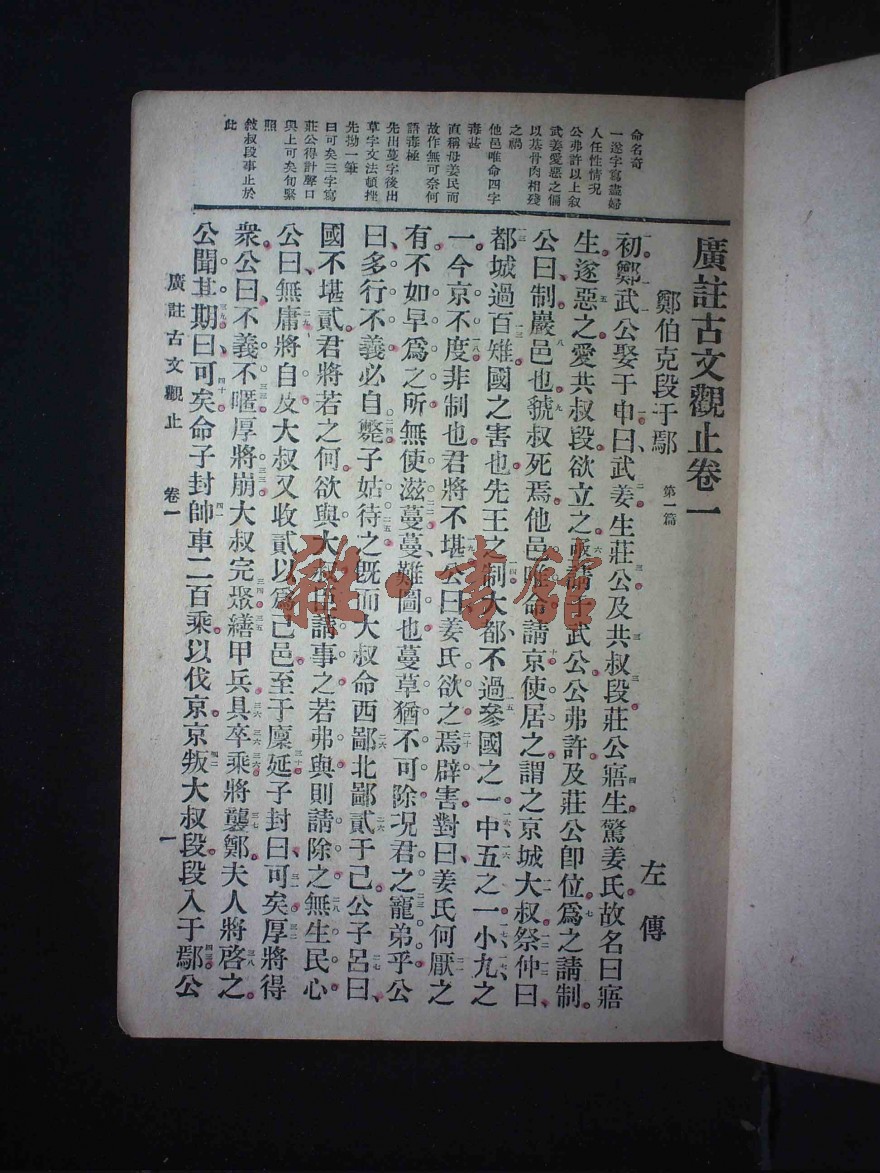 廣註古文觀止卷一
鄭伯克段于鄢 第一篇
左傳
初鄭武公娶于申曰武姜生莊公及共叔段莊公寤生驚姜氏故名曰寤
生遂惡之愛共叔段欲立之亟請于武公公弗許及莊公卽位爲之請制
公曰制巖邑也虢叔死焉他邑唯命請京使居之謂之京城大叔祭仲曰
都城過百雉國之害也先王之制大都不過參國之一中五之一小九之
一今京不度非制也君將不堪公曰姜氏欲之焉辟害對曰姜氏何厭之
有不如早爲之所無使滋蔓蔓難圖也蔓草猶不可除况君之寵弟乎公
曰多行不義必自斃子姑待之既而大叔命西鄙北鄙貳于己公子呂曰
國不堪貳君將若之何欲與大叔臣請事之若弗與則請除之無生民心
公曰無庸將自及大叔又收貳以爲己邑至于廩延子封曰可矣厚將得
衆公曰不義不暱厚將崩大叔完聚繕甲兵具卒乘將襲鄭夫人將啓之
公聞其期曰可矣命子封帥車二百乘以伐京京叛大叔段段入于鄢公
命名奇
一遂字寫盡婦
人任性情况
公弗許以上叙
武姜愛惡之偏
以基骨肉相殘
之禍
他邑唯命四字
毒甚
直稱母姜氏而
故作無可奈何
語毒極
先出蔓字後出
草字文法頓挫
先拗一筆
曰可矣三字寫
莊公得計聲口
與上可矣句緊
照
敍叔段事止於
此
廣註古文觀止 卷一
一
雜·書館